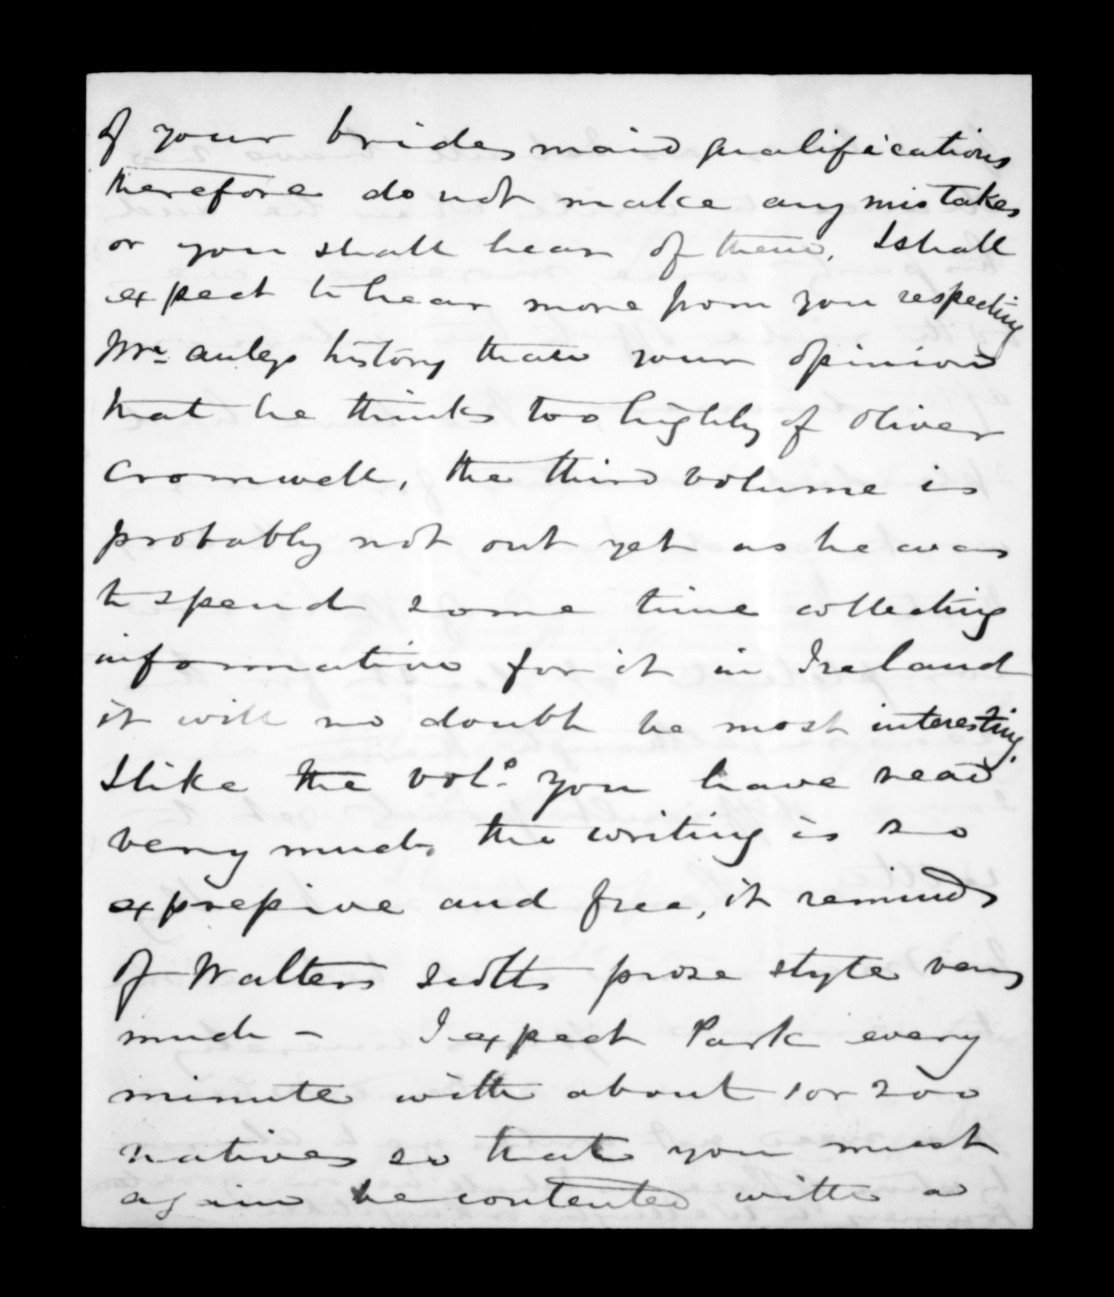 of your brides maid qualifications
therefore do not make any mistakes
or you shall hear of them, I shall
expect to hear more from you respecting
Mc. auleys history than your opinion
that he thinks too highly of Oliver
Cromwell, the third volume is
probably not out yet as he was
to spend some time collecting
information for it in Ireland
it will no doubt be most interesting.
I like the vol.s you have read
very much, the writing is so
expressive and free, it reminds
of Walters Scotts prose style very
much – I expect Park every
minute with about 1 or 200
natives so that you must
again be contented with a